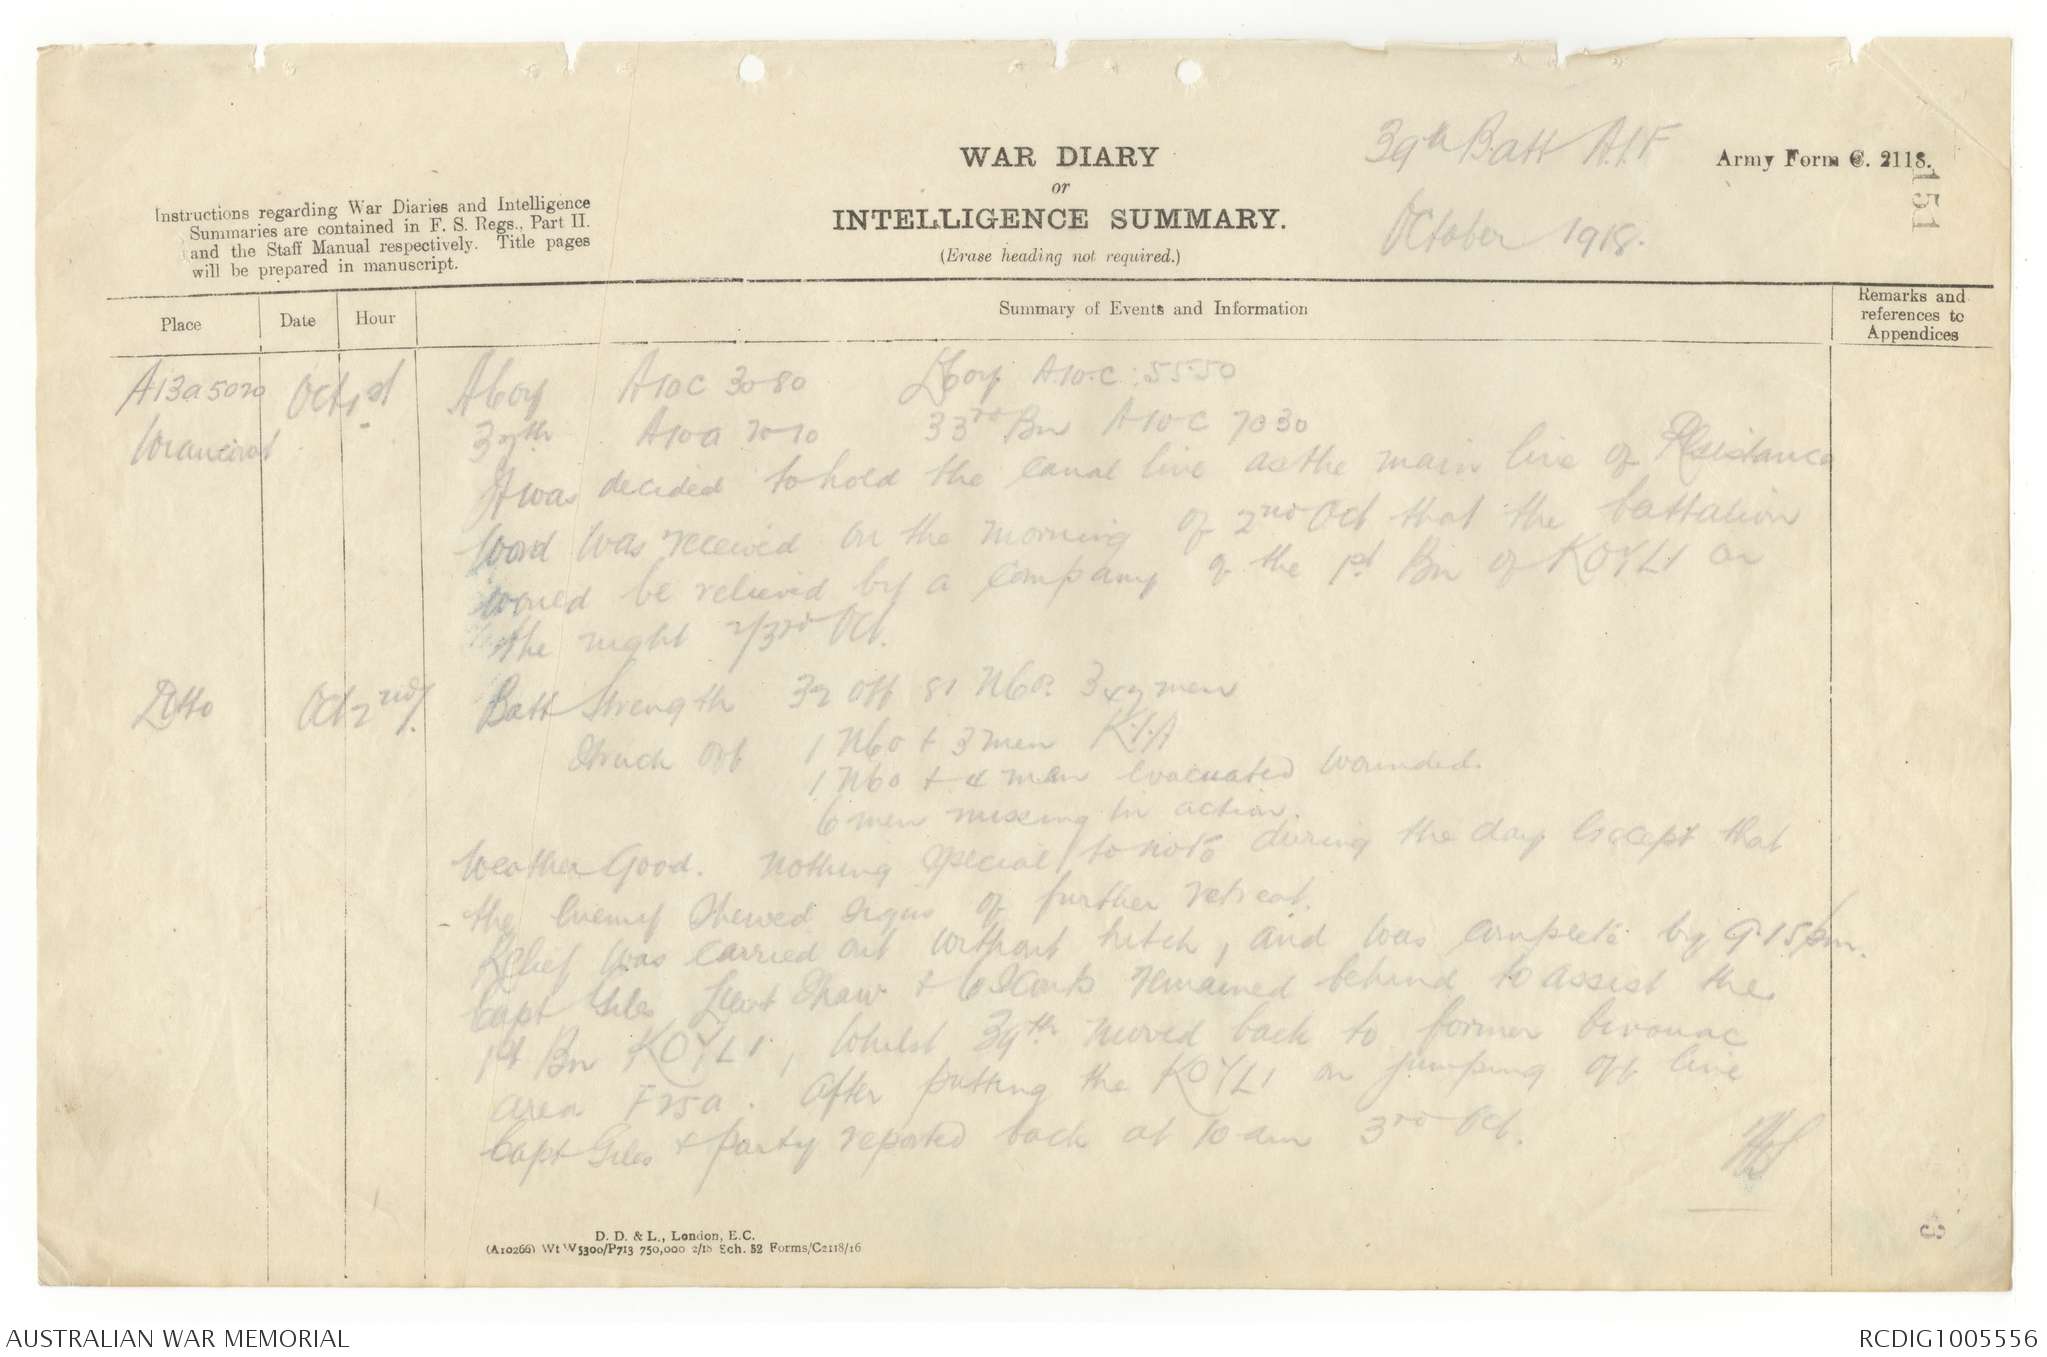 39th Batt A.I.F
October 1918.
WAR DIARY
or
INTELLIGENCE SUMMARY.
(Erase heading not required.)
Army Form C. 2118.
151
Instructions regarding War Diaries and Intelligence
Summaries are contained in F. S. Regs., Part II.
and the Staff Manual respectively. Title pages
will be prepared in manuscript.
Place
Date
Hour
Summary of Events and Information
Remarks and
references to
Appendices
A13a5020 Oct 1st A Coy A10C 3080 D Coy A.10.C.5550
37th A10a 7070 33rd Bn A10C 7030
It was decided to hold the canal line as the main line of Resistance
Word was received on the morning of 2nd Oct that the battalion
would be relieved by a company of the 1st Bn of KOYLI on
the night 2/3rd Oct.
Ditto Oct 2nd Batt Strength 32 Off 81 NCOs men
Struck off 1 NCO + 3 men K.I.A
1 NCO + 4 men evacuated wounded.
6 men missing in action.
Weather Good. Nothing special to note during the day except that
the Enemy shewed signs of further retreat.
Relief was carried out without hitch, and was complete by 9.15pm.
Capt Giles Lieut Shaw + 6 Scouts remained behind to assist the
1st Bn KOYLI, whilst 39th moved back to former bivouac
area F25a. After putting the KOYLI on jumping off line
Capt Giles & party reported back at 10 am 3rd Oct.
3
D. D. & L., London, E.C.
(A10266) Wt W5300/P713 750,000 2/18 Sch. 52 Forms/C2118/16
AUSTRALIAN WAR MEMORIAL
RCDIG1005556